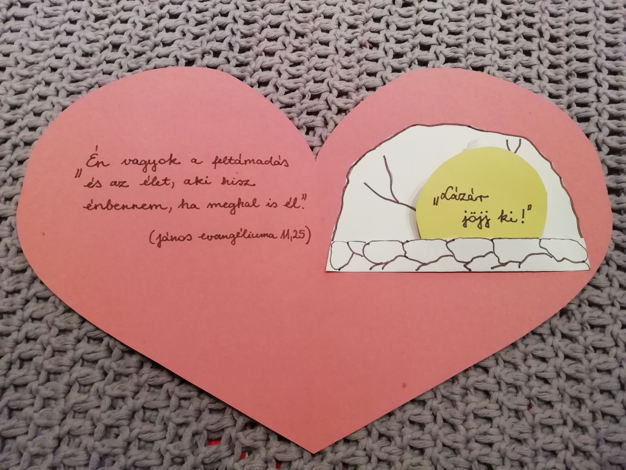 „Én vagyok a feltámadás
és az élet, aki hisz
énbennem, ha meghal is él."
(János evangéliuma 11,25)
„Lázár
jöjj ki!"